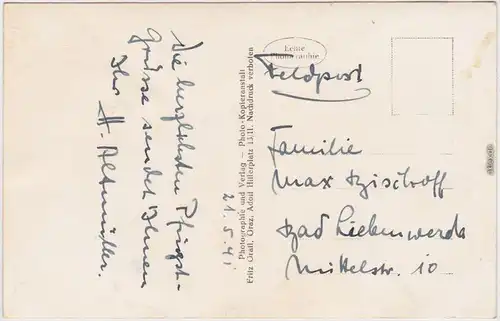 Die herzlichsten Pfingst-
grüsse sendet Ihnen
Ihr H. Altmüller.
21.5.41
Photographie und Verlag — Photo-Kopieranstalt
Fritz Grall, Graz, Adolf Hitlerplatz 13/II. Nachdruck verboten
Echte
Photographie
Feldpost
Familie
Max Bischoff
Bad Liebenwerda
Mittelstr. 10